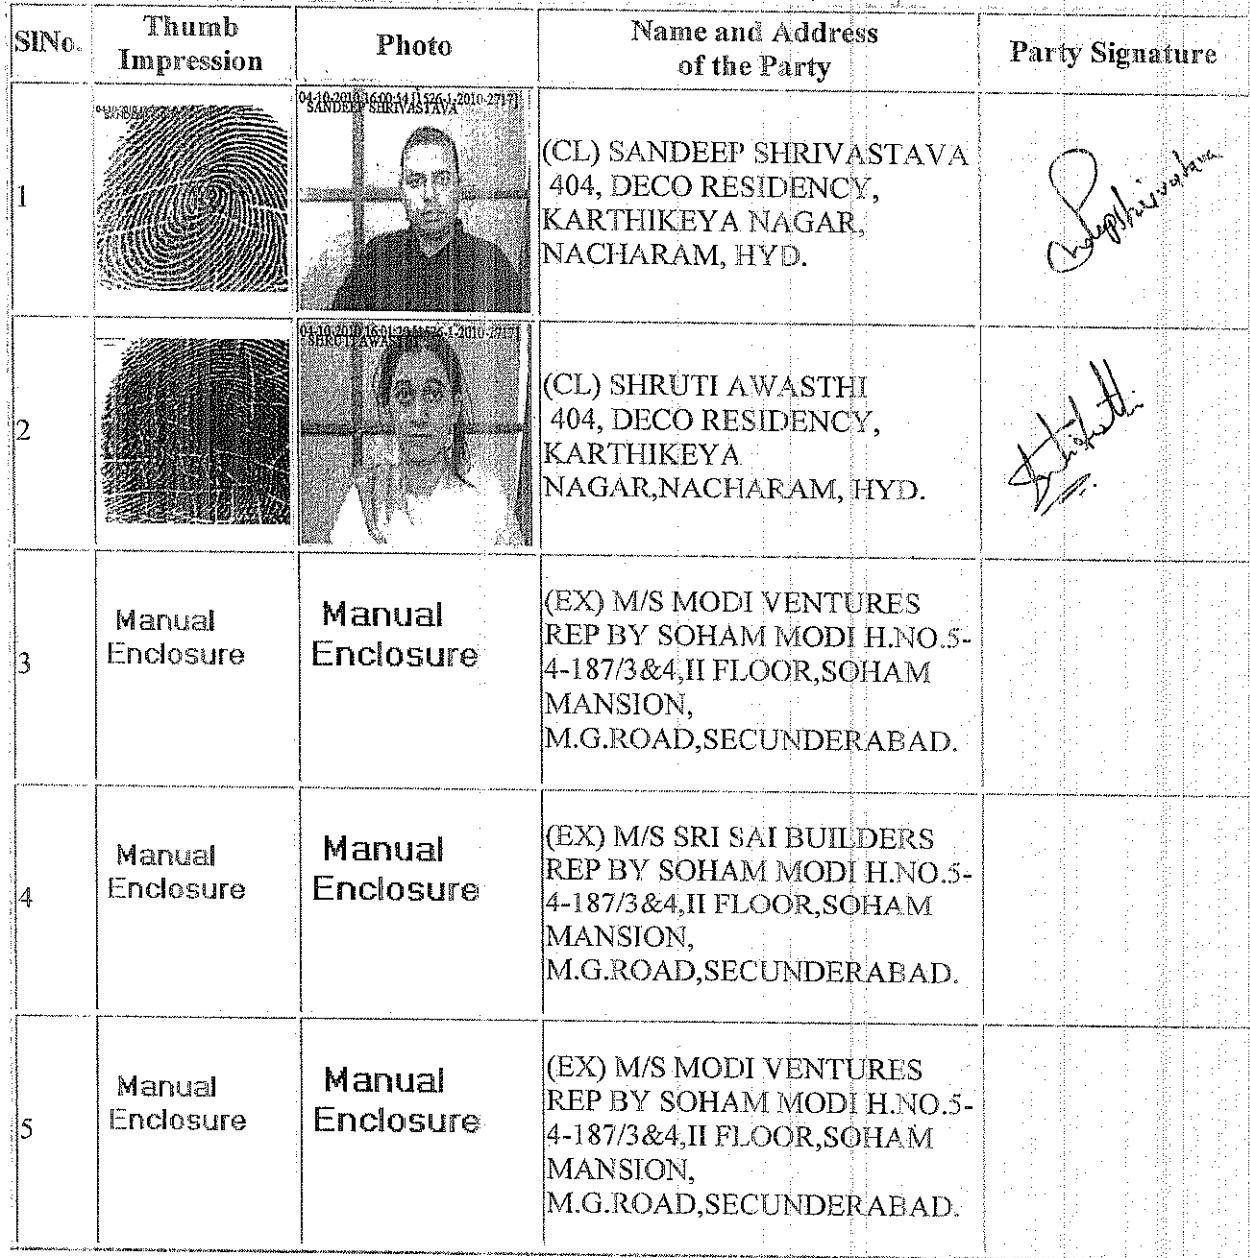 SlNo.
Thumb
Impression
Photo
Name and Address
of the Party
Party Signature
1
SANDEEP SHRIVASTAVA
(CL) SANDEEP SHRIVASTAVA
404, DECO RESIDENCY,
KARTHIKEYA NAGAR,
NACHARAM, HYD.
2
SHRUTI AWASTHI
(CL) SHRUTI AWASTHI
404, DECO RESIDENCY,
KARTHIKEYA
NAGAR,NACHARAM, HYD.
3
Manual
Enclosure
Manual
Enclosure
(EX) M/S MODI VENTURES
REP BY SOHAM MODI H.NO.5-
4-187/3&4,II FLOOR,SOHAM
MANSION,
M.G.ROAD,SECUNDERABAD.
4
Manual
Enclosure
Manual
Enclosure
(EX) M/S SRI SAI BUILDERS
REP BY SOHAM MODI H.NO.5-
4-187/3&4,II FLOOR,SOHAM
MANSION,
M.G.ROAD,SECUNDERABAD.
5
Manual
Enclosure
Manual
Enclosure
(EX) M/S MODI VENTURES
REP BY SOHAM MODI H.NO.5-
4-187/3&4,II FLOOR,SOHAM
MANSION,
M.G.ROAD,SECUNDERABAD.